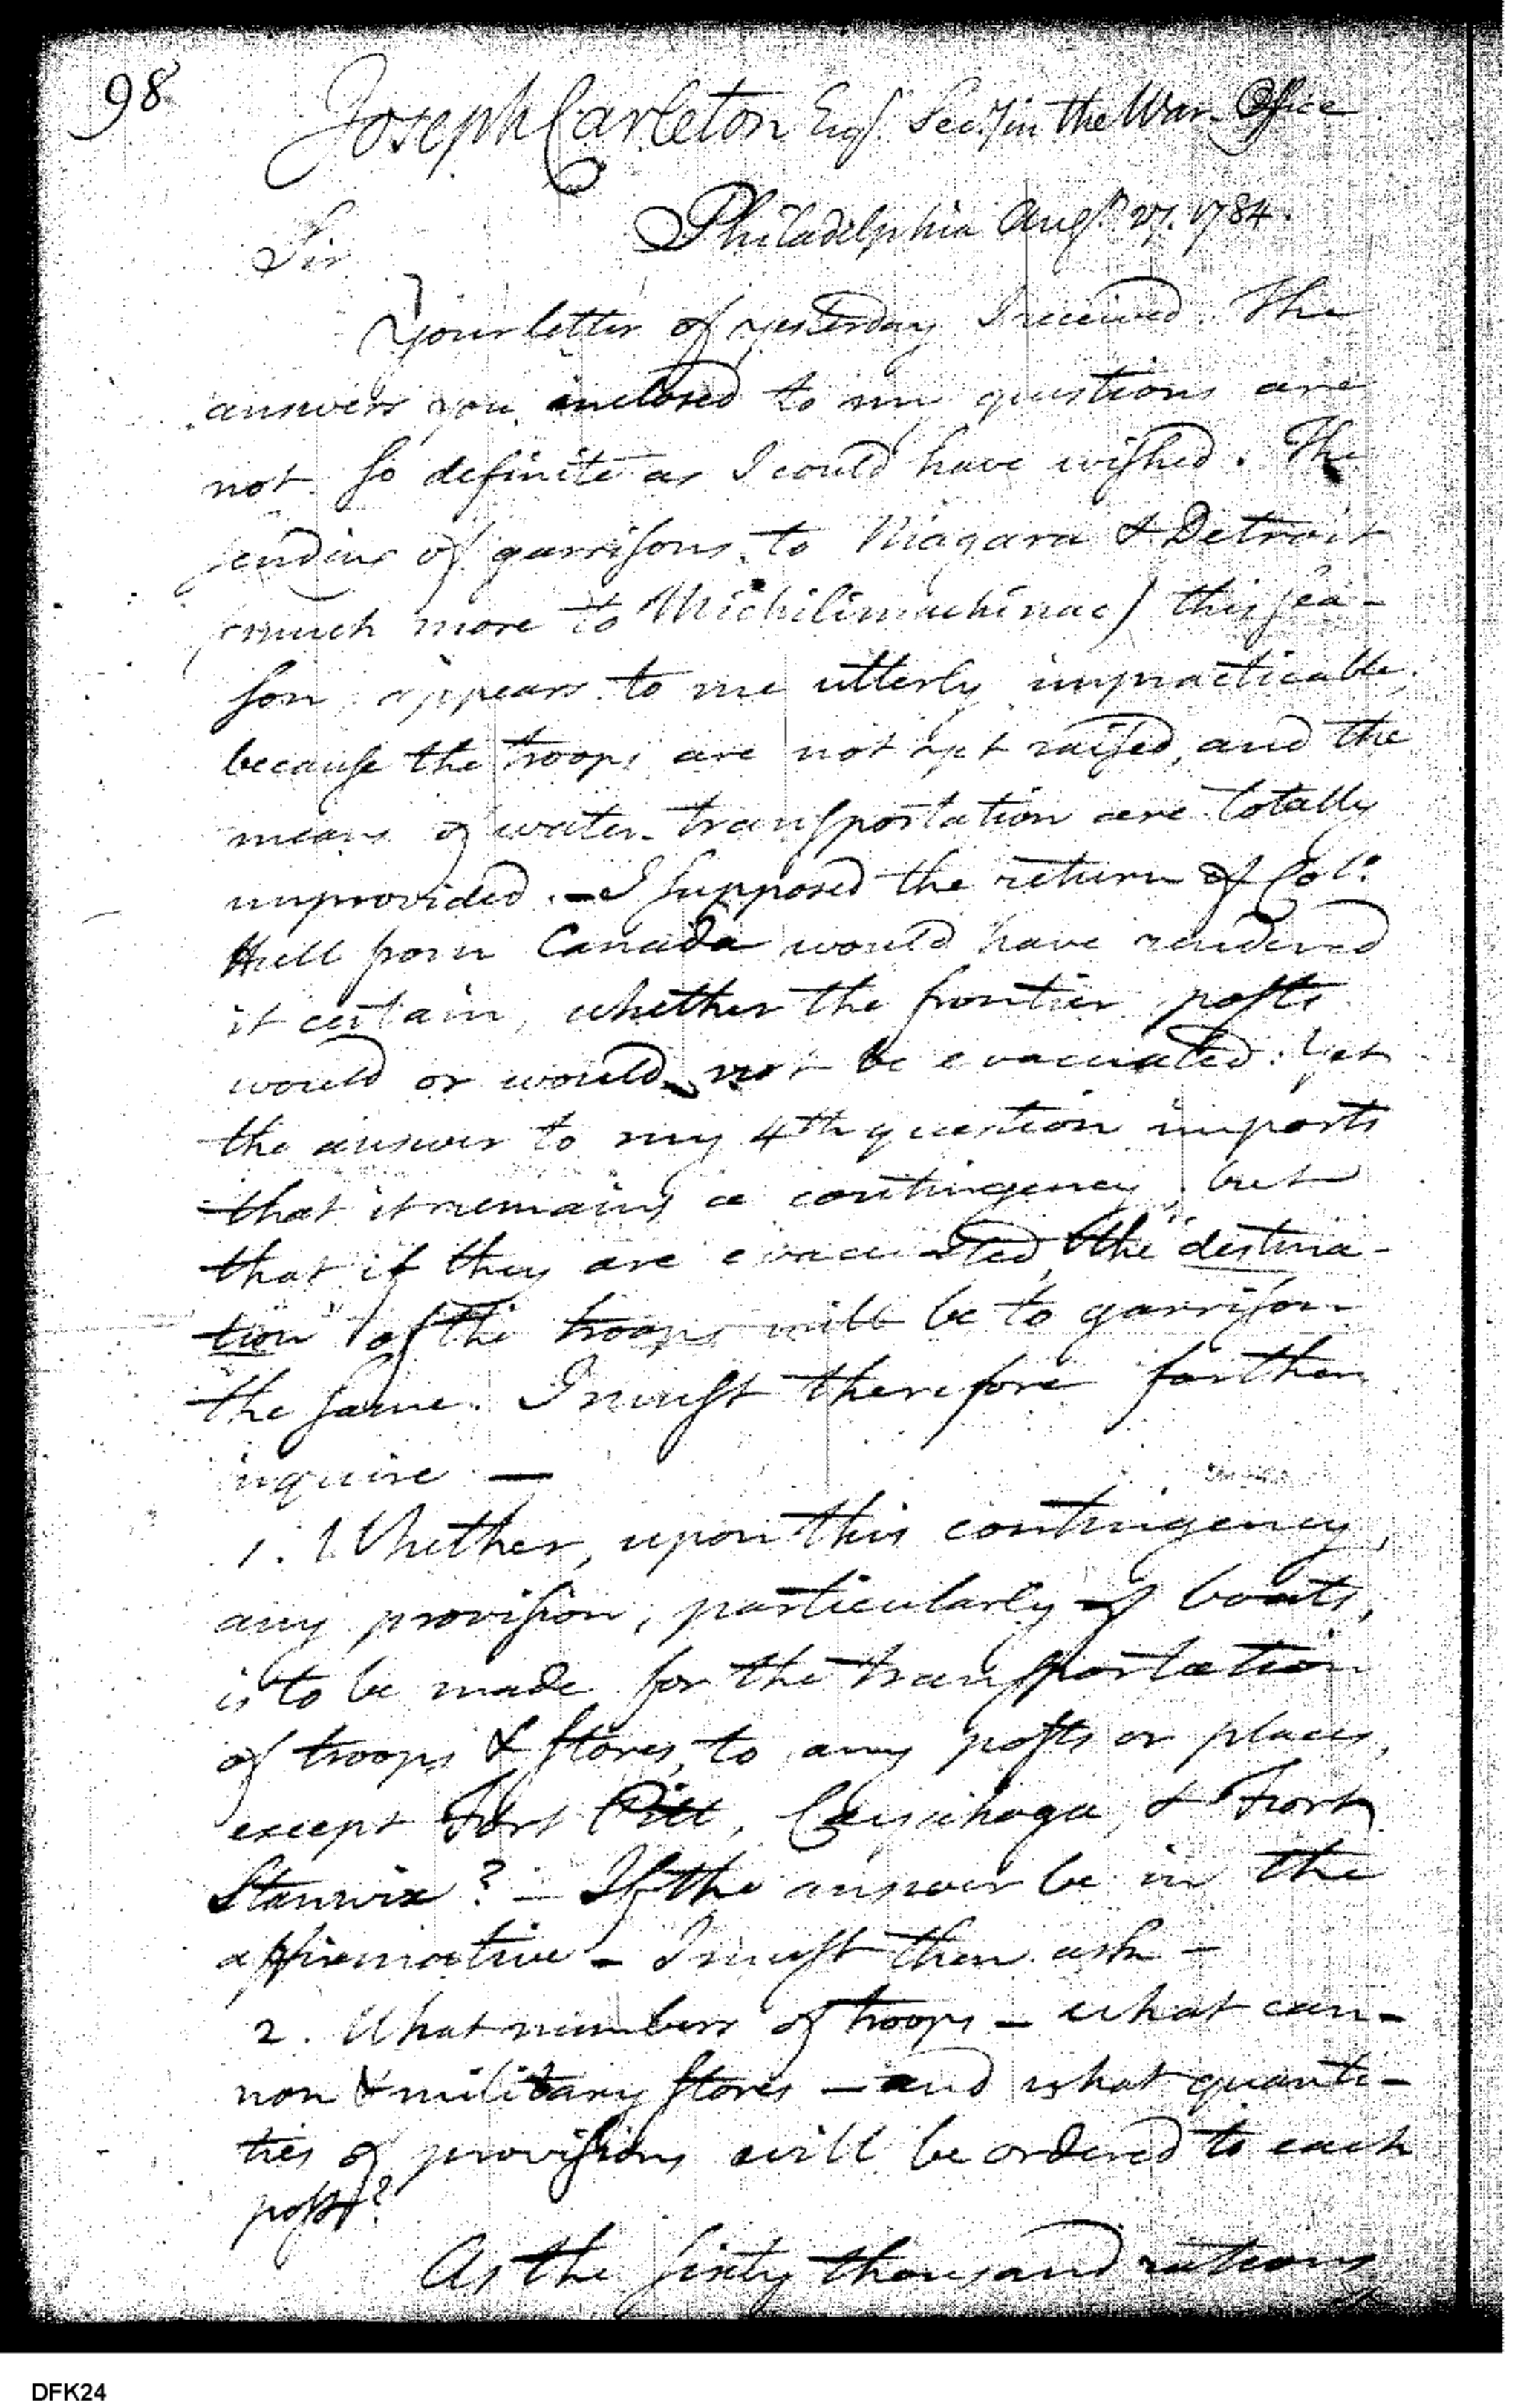 98
Joseph Carleton Esqr. Secy in the War Office
Philadelphia Augt. 27. 1784.
Sir
Your letter of yesterday I received. The
answers you inclosed to my questions are
not so definite as I could have wished. The
sending of garrisons to Niagara & Detroit
(much more to Michilimachinac) this sea-
son, appears to me utterly impracticable;
because the troops are not yet raised, and the
means of water-transportation are totally
unprovided. — I supposed the return of Colo.
Hull from Canada would have rendered
it certain, whether the frontier posts
would or would not be evacuated: Yet
the answer to my 4th question imports
that it remains a contingency; but
that if they are evacuated, "the destina-
tion" of the troops will be to garrison
the same. I must therefore farther
inquire —
1. Whether, upon this contingency,
any provision, particularly of boats,
is to be made for the transportation
of troops & stores, to any posts or places,
except Fort Pitt, Cayahoga, & Fort
Stanwix? — If the answer be in the
affirmative — I must then ask —
2. What numbers of troops — what can-
non & military stores — and what quanti-
ties of provisions will be ordered to each
post?
As the sixty thousand rations
DFK24